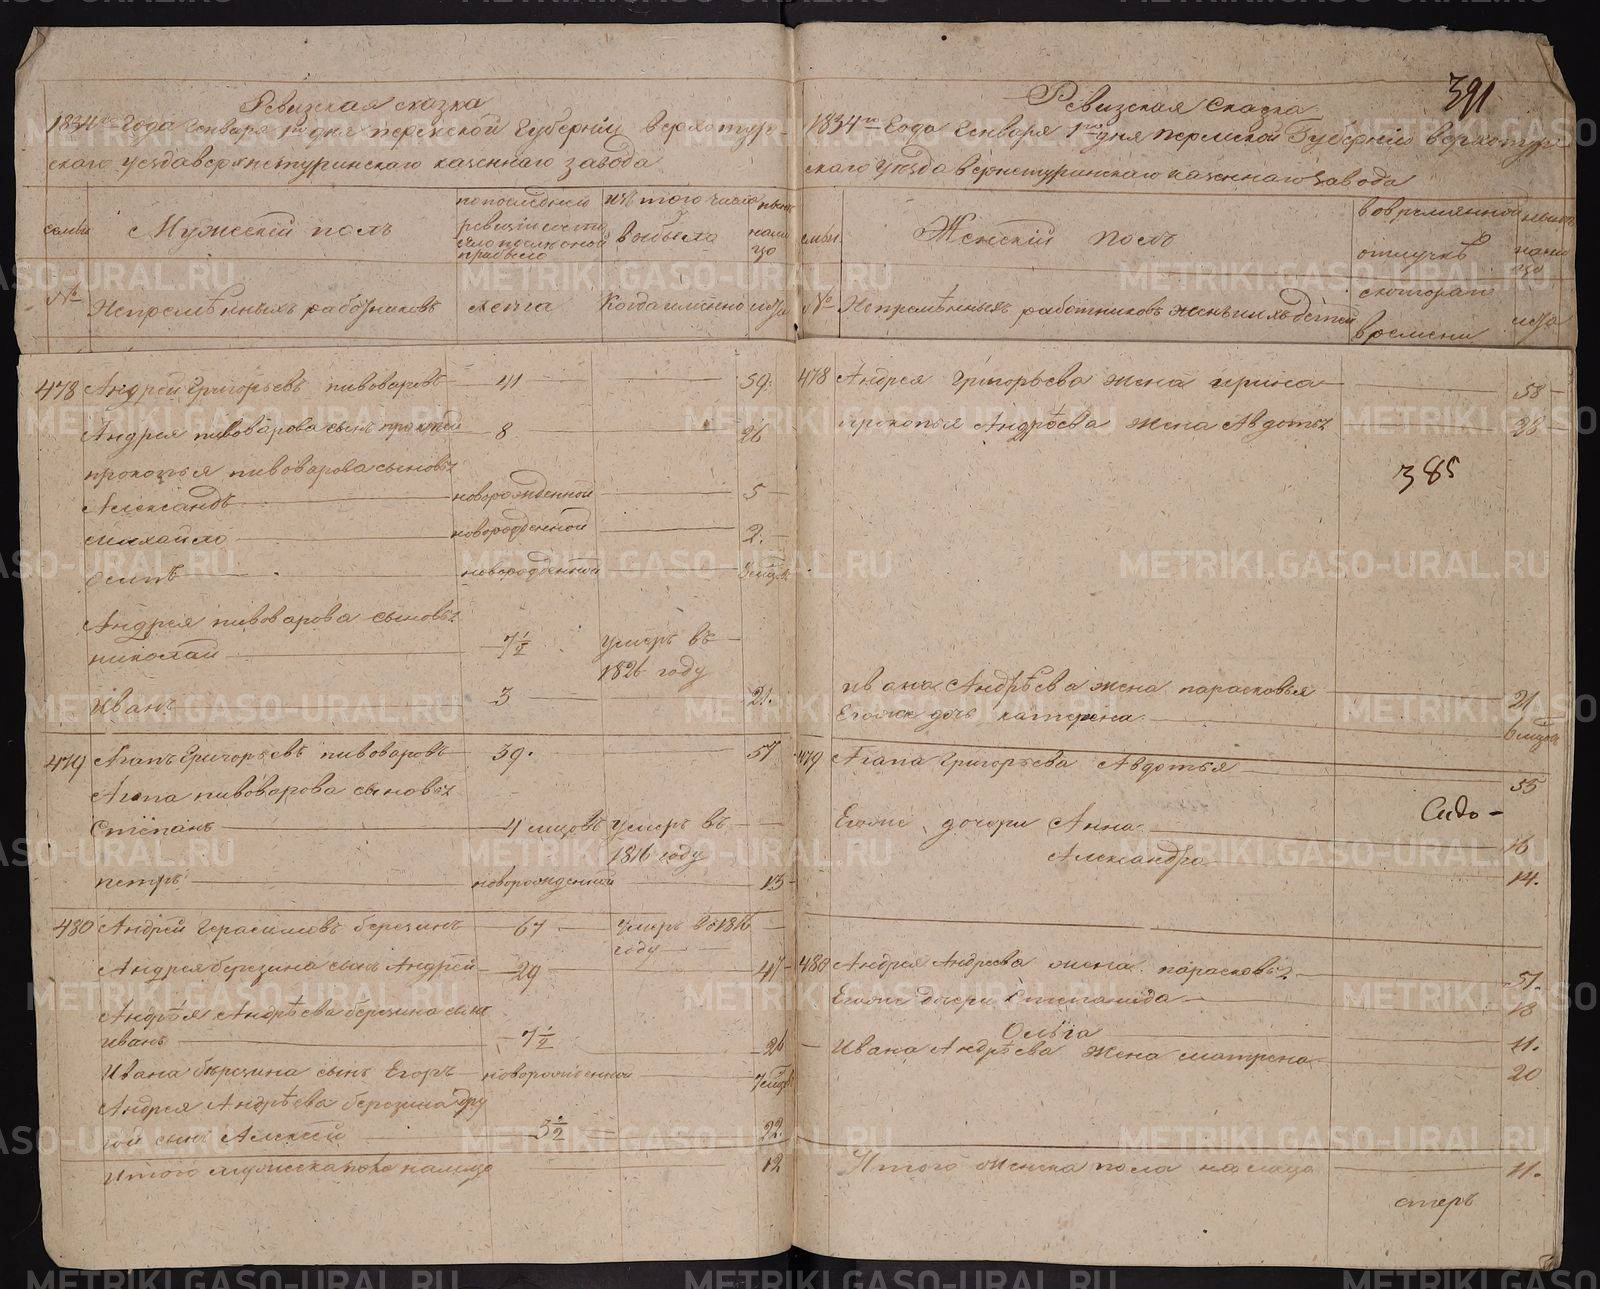 Ревизская сказка
1834го Года Генваря 1го дня пермской Губернiи верхотур-
скаго уезда верхнетуринскаго казеннаго завода
семьи
Мужескiй полъ
по последней ревизiи состо яло и после оной прибыло
изъ того числа выбыло
ныне на ли цо
№
Непременныхъ работниковъ
лета
Когда имянно
лета
478 Андрей Григорьевъ пивоваровъ 41 59.
Андрея пивоварова сынъ прокопей 8 26
прокопья пивоварова сыновья
Александъ новорожденной 5
михайло новорожденной 2.
осипъ новорожденной
Андрея пивоварова сыновья
николай 7 1/2 умеръ въ
1826 году
Иванъ 3 21.
479 Агапъ Григорьевъ пивоваровъ 39. 57
Агапа пивоварова сыновья
Степанъ 4 мцовъ умеръ въ
1816 году
петръ новорожденной 13
480 Андрей Герасимовъ березинъ 67 умеръ въ 1816
году
Андрея березина сынъ Андрей 29 47
Андрѣя Андрѣева березина сынъ
иванъ 7 1/2 26
Ивана березина сынъ Егоръ новорожденной
Андрея Андрѣева березина дру
гой сынъ Алексей 3 1/2 22.
итого мужеска пола налицо 12
391
Ревизская Сказка
1834го Года Генваря 1го дня пермской Губернiи верхотур-
скаго Уезда верхнетуринскаго казеннаго завода
семьи
Женскiй полъ
во временной отлучкѣ
ныне нали цо
№
Непременныхъ работниковъ жены ихъ дѣтей
с котораго времени
лета
478 Андрея Григорьева жена ирина 58
прокопья Андрѣева жена Авдотья 28
385
ивана Андрѣева жена парасковья 21
Егоже дочь катерина 6 мцовъ
479 Агапа Григорьева Авдотья 55
Сидо-
Егоже дочери Анна 16
Александра 14.
480 Андрея Андреева жена парасковья 51.
Егоже дочери Степанида 18
Ольга 11.
Ивана Андрѣева жена матрена 20
Итого женска пола налицо 11.